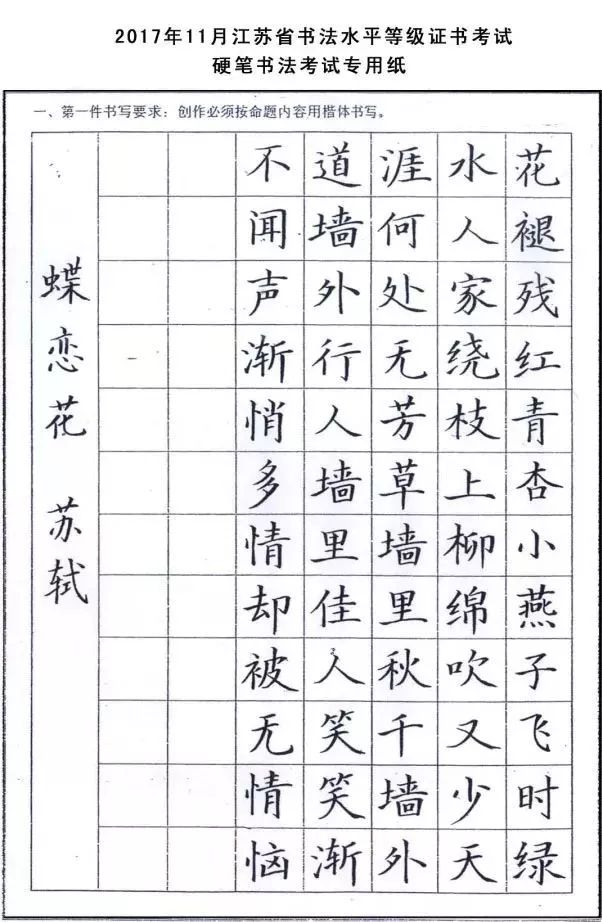 2017年11月江苏省书法水平等级证书考试
硬笔书法考试专用纸
一、第一件书写要求：创作必须按命题内容用楷体书写。
花褪残红青杏小燕子飞时绿
水人家绕枝上柳绵吹又少天
涯何处无芳草墙里秋千墙外
道墙外行人墙里佳人笑笑渐
不闻声渐悄多情却被无情恼
蝶恋花 苏轼